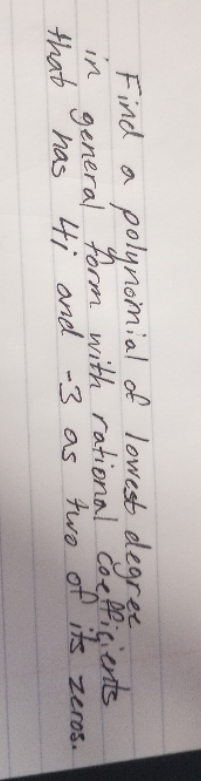 Find a polynomial of lowest degree
in general form with rational coefficients
that has 4i and -3 as two of its zeros.